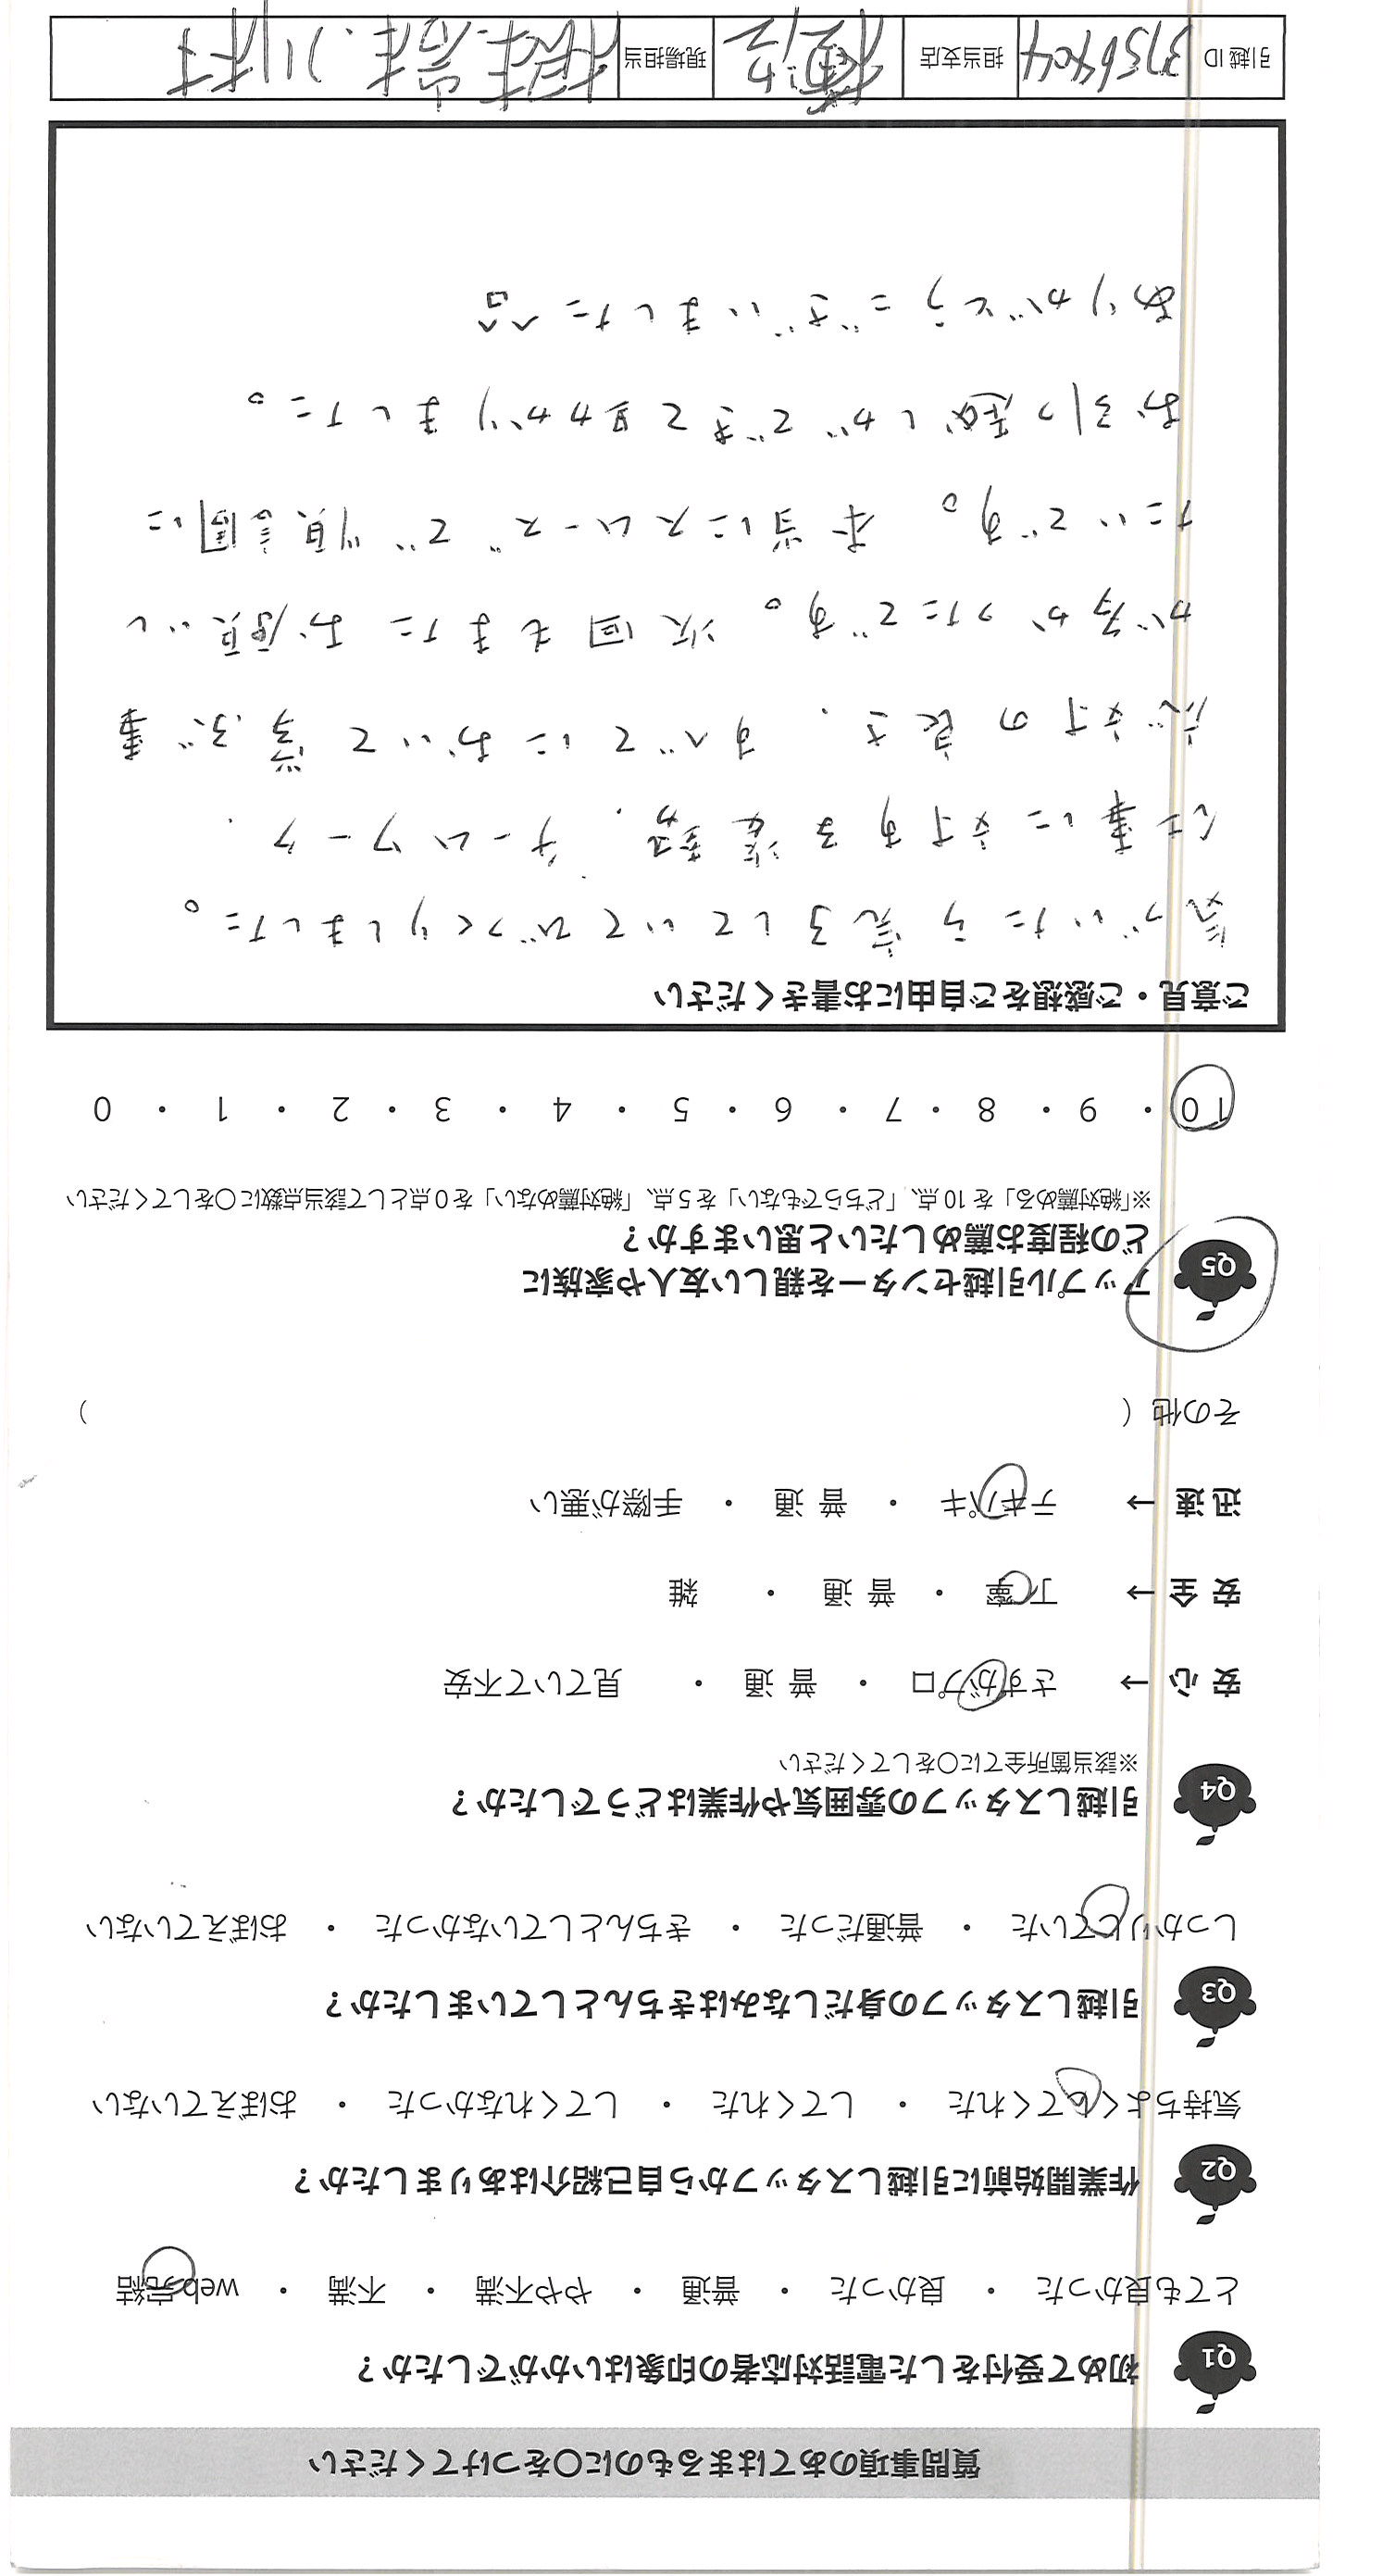 質問事項のあてはまるものに○をつけてください
Q1 初めて受付をした電話対応者の印象はいかがでしたか？
とても良かった ・ 良かった ・ 普通 ・ やや不満 ・ 不満 ・ web完結
Q2 作業開始前に引越しスタッフから自己紹介はありましたか？
気持ちよくしてくれた ・ してくれた ・ してくれなかった ・ おぼえていない
Q3 引越しスタッフの身だしなみはきちんとしていましたか？
しっかりしていた ・ 普通だった ・ きちんとしていなかった ・ おぼえていない
Q4 引越しスタッフの雰囲気や作業はどうでしたか？
※該当箇所全てに○をしてください
安心→ さすがプロ ・ 普通 ・ 見ていて不安
安全→ 丁寧 ・ 普通 ・ 雑
迅速→ テキパキ ・ 普通 ・ 手際が悪い
その他（ ）
Q5 アップル引越センターを親しい友人や家族に
どの程度お薦めしたいと思いますか？
※「絶対薦める」を10点、「どちらでもない」を5点、「絶対薦めない」を0点として該当点数に○をしてください
10 ・ 9 ・ 8 ・ 7 ・ 6 ・ 5 ・ 4 ・ 3 ・ 2 ・ 1 ・ 0
ご意見・ご感想をご自由にお書きください
気づいたら完了していてびっくりしました。
仕事に対する姿勢、チームワーク、
応対の良さ、すべてにおいて学ぶ事
が多かったです。次回もまたお願いし
たいです。本当にスムーズで順調に
お引っ越しができて助かりました。
ありがとうございました^^
引越ID 3156404 担当支店 現場担当 川村